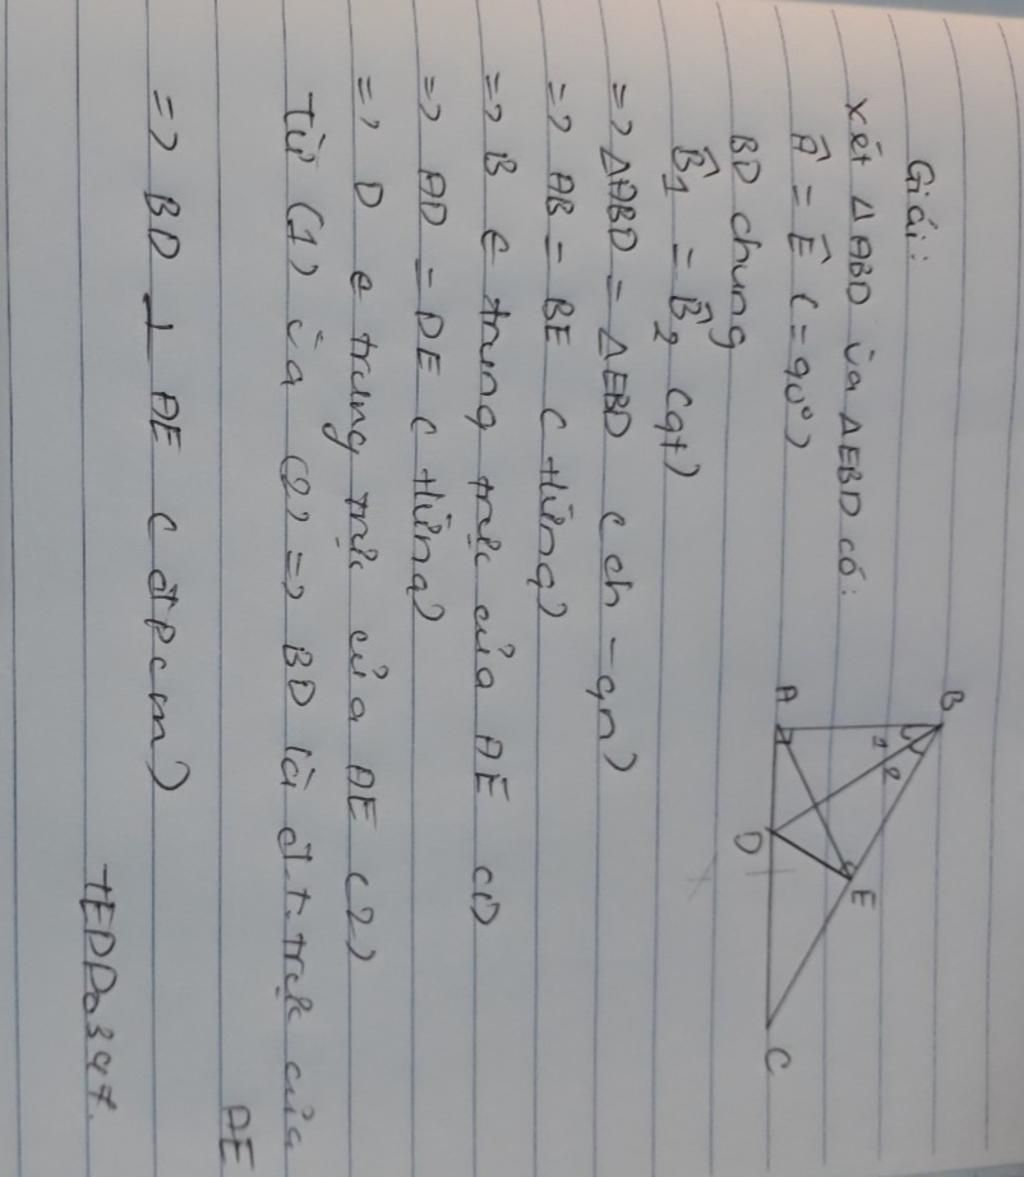 Giải:
xét △ABD và △EBD có:
Â = Ê (= 90°)
BD chung
B̂1 = B̂2 (gt)
=> △ABD = △EBD (ch - gn)
=> AB = BE (tứng)
=> B ∈ trung trực của AE (1)
=> AD = DE (tứng)
=> D ∈ trung trực của AE (2)
Từ (1) và (2) => BD là đ.t.trực của
AE
=> BD ⊥ AE (đpcm)
TEDDa347.
B
1
2
A
E
D
C